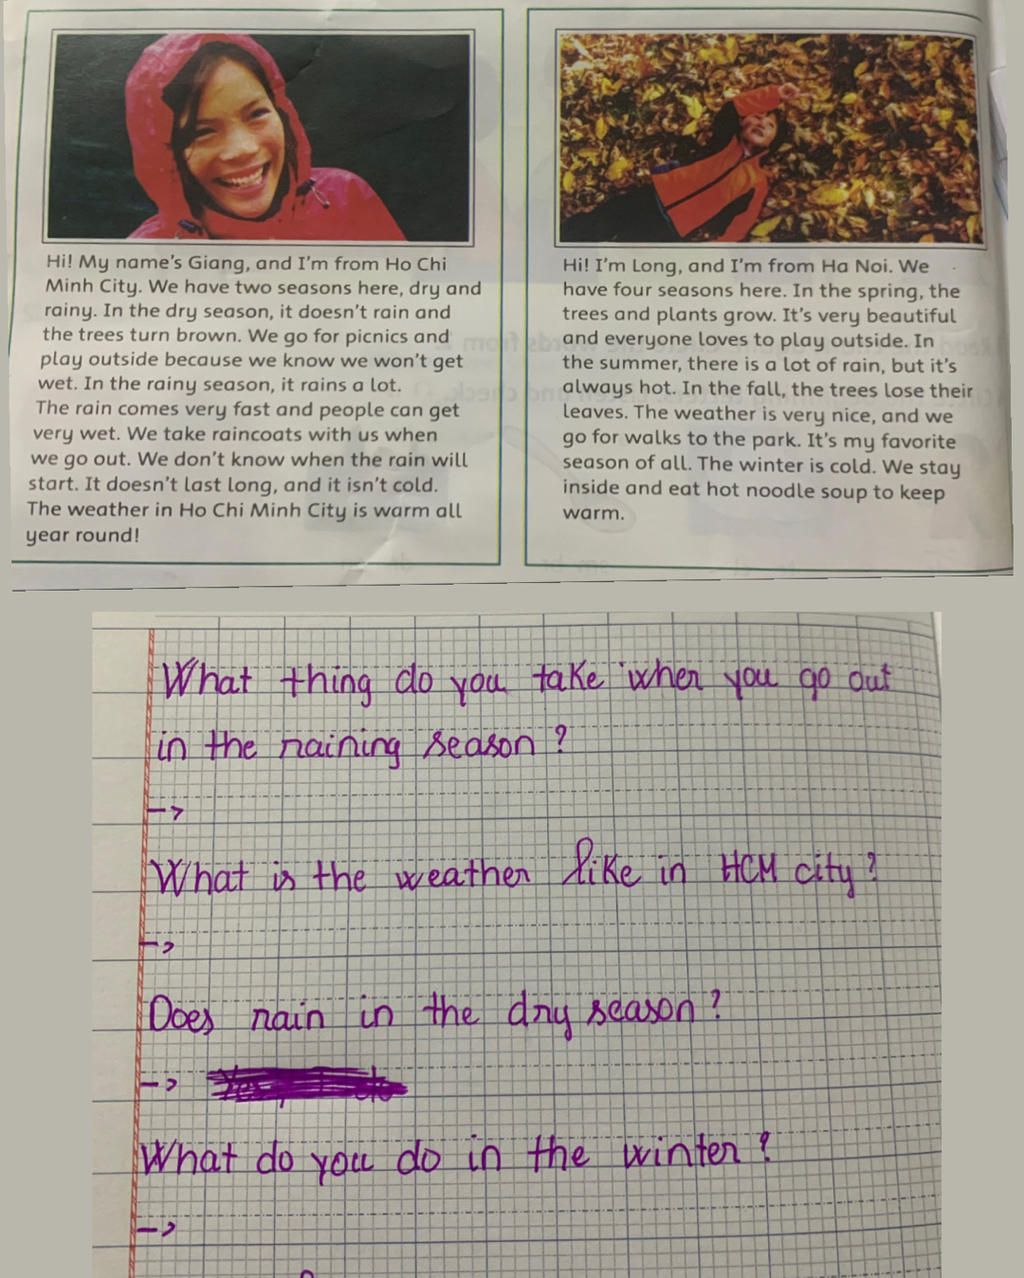 Hi! My name's Giang, and I'm from Ho Chi
Minh City. We have two seasons here, dry and
rainy. In the dry season, it doesn't rain and
the trees turn brown. We go for picnics and
play outside because we know we won't get
wet. In the rainy season, it rains a lot.
The rain comes very fast and people can get
very wet. We take raincoats with us when
we go out. We don't know when the rain will
start. It doesn't last long, and it isn't cold.
The weather in Ho Chi Minh City is warm all
year round!
Hi! I'm Long, and I'm from Ha Noi. We
have four seasons here. In the spring, the
trees and plants grow. It's very beautiful
and everyone loves to play outside. In
the summer, there is a lot of rain, but it's
always hot. In the fall, the trees lose their
leaves. The weather is very nice, and we
go for walks to the park. It's my favorite
season of all. The winter is cold. We stay
inside and eat hot noodle soup to keep
warm.
What thing do you take when you go out
in the raining season?
->
What is the weather like in HCM city?
->
Does rain in the dry season?
->
What do you do in the winter?
->